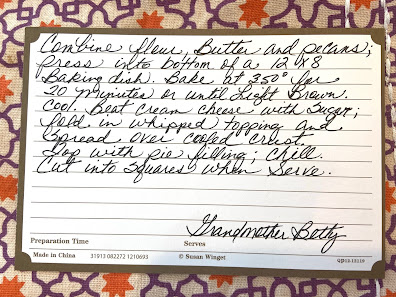 Combine flour, Butter and pecans;
press into bottom of a 12x8
Baking dish. Bake at 350° for
20 minutes or until Light Brown.
Cool. Beat cream cheese with Sugar;
fold in whipped topping and
Spread over cooled crust.
Top with pie filling; chill.
Cut into Squares when Serve.
Grandmother Betty
Preparation Time Serves
Made in China 31913 082272 1210693 © Susan Winget